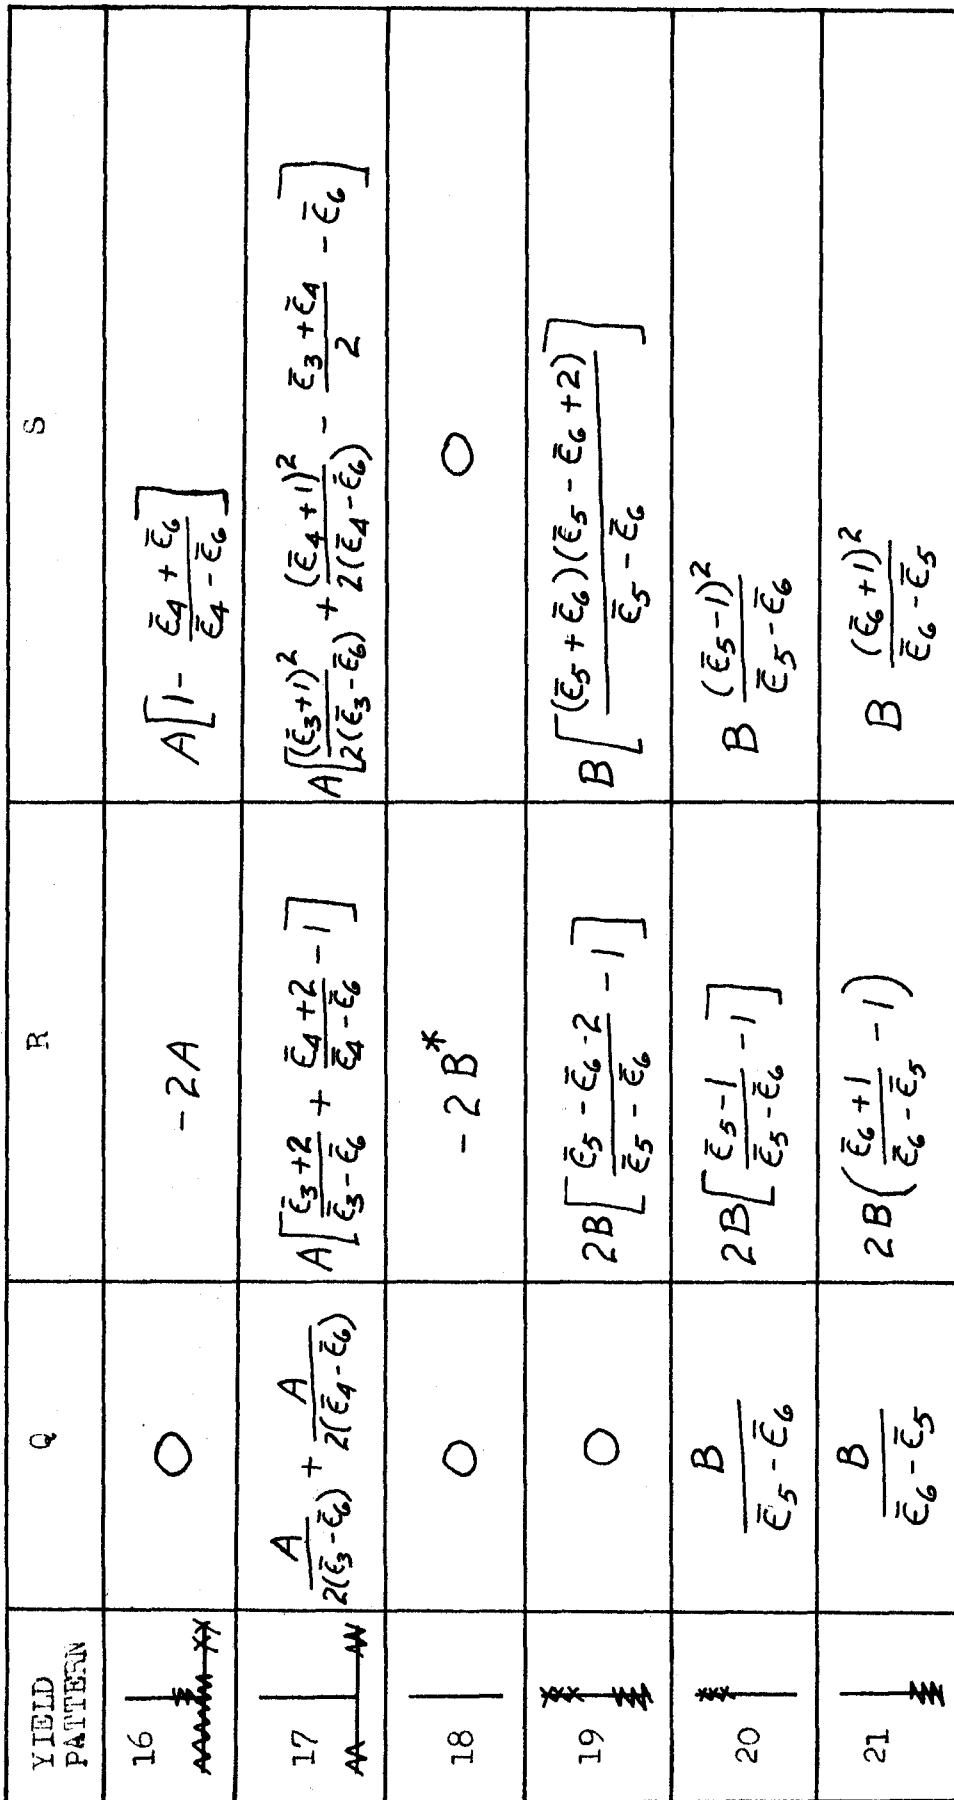 YIELD PATTERN | Q | R | S
16 | O | -2A | A[1 - (ε̄4 + ε̄6)/(ε̄4 - ε̄6)]
17 | A/2(ε̄3-ε̄6) + A/2(ε̄4-ε̄6) | A[(ε̄3+2)/(ε̄3-ε̄6) + (ε̄4+2)/(ε̄4-ε̄6) - 1] | A[(ε̄3+1)²/2(ε̄3-ε̄6) + (ε̄4+1)²/2(ε̄4-ε̄6) - (ε̄3+ε̄4)/2 - ε̄6]
18 | O | -2B* | O
19 | O | 2B[(ε̄5-ε̄6-2)/(ε̄5-ε̄6) - 1] | B[(ε̄5+ε̄6)(ε̄5-ε̄6+2)/(ε̄5-ε̄6)]
20 | B/(ε̄5-ε̄6) | 2B[(ε̄5-1)/(ε̄5-ε̄6) - 1] | B (ε̄5-1)²/(ε̄5-ε̄6)
21 | B/(ε̄6-ε̄5) | 2B((ε̄6+1)/(ε̄6-ε̄5) - 1) | B (ε̄6+1)²/(ε̄6-ε̄5)